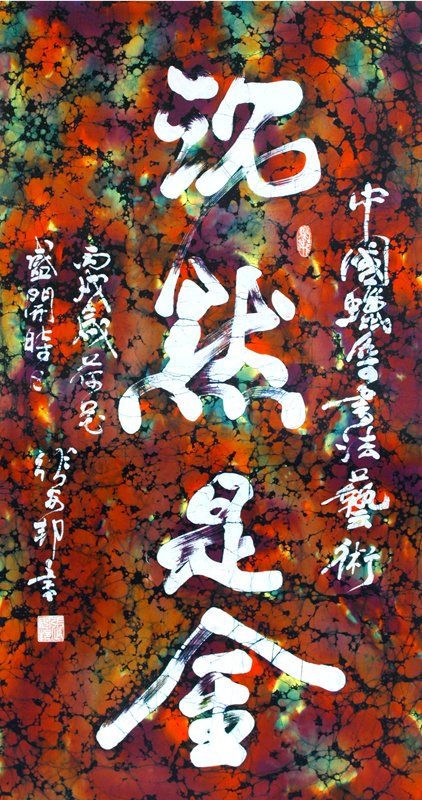 中國蠟染書法藝術
沉默是金
丙戌歲荷花
盛開時 安邦書